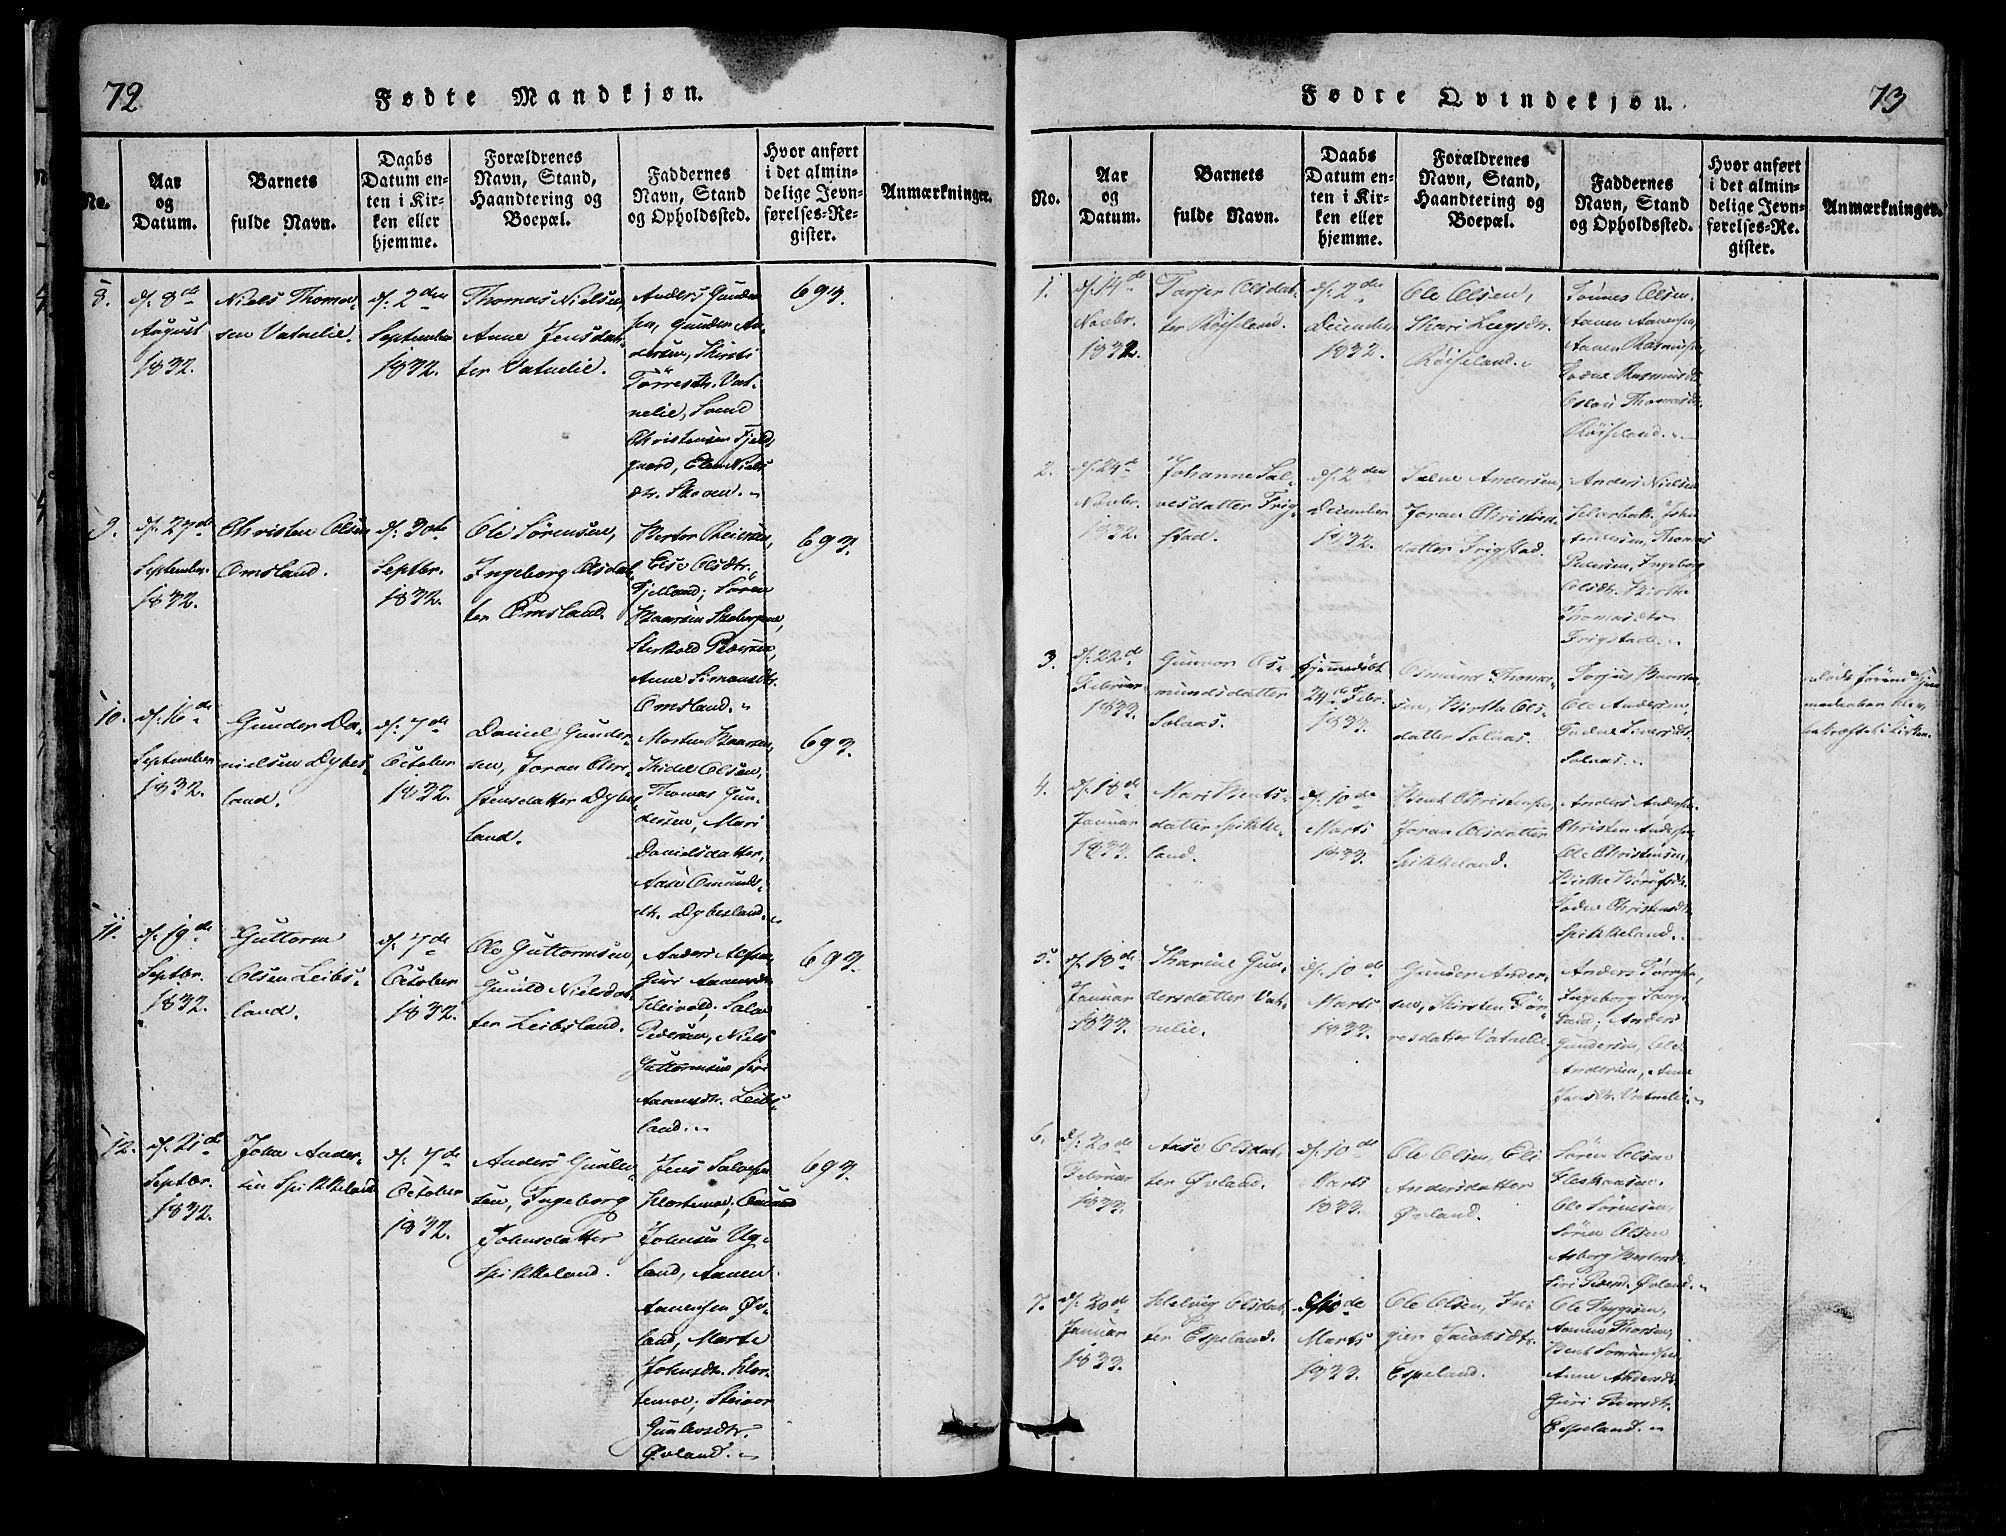 72
Fødte Mandkjøn.
No.
Aar
og
Datum.
Barnets
fulde Navn.
Daabs
Datum en-
ten i Kir-
ken eller
hjemme.
Forældrenes
Navn, Stand,
Haandtering og
Boepæl.
Faddernes
Navn, Stand
og Opholdssted.
Hvor anført
i det almin-
delige Jevn-
førelses-Re-
gister.
Anmærkninger.
8.
d. 8de
August
1832.
Niels Thomas-
sen Vatnelie.
d. 2den
September
1832.
Thomas Nielsen,
Anne Jensdat-
ter Vatnelie.
Anders Gunder-
sen, Gunder An-
dersen, Kirsti
Tørresdtr. Vat-
nelie,
Christensen Fjeld-
gaard, Elen Niels-
dtr. Skoven.
693.
9.
d. 27de
September
1832.
Christen Olsen
Omsland.
d. 30te
Septbr.
1832.
Ole Sørensen,
Ingeborg Olsdat-
ter Omsland.
Reiersen,
Else Olsdtr.
Fjelland; Søren
Sterkold Pedersen,
Anne Simonsdtr.
Omsland.
693.
10.
d. 16de
September
1832.
Gunder Da-
nielsen Dybes-
land.
d. 7de
October
1832.
Daniel Gunder-
sen, Joran Chri-
stensdatter Dybes-
land.
Morten Baarsen,
Olsen,
Thomas Gun-
dersen, Mari
Danielsdatter,
Aase Omunds-
dtr. Dybesland.
693.
11.
d. 19de
Septbr.
1832.
Guttorm
Olsen Leibs-
land.
d. 7de
October
1832.
Ole Guttormsen,
Gunild Nielsdat-
ter Leibsland.
Anders
Guri Aanensdtr.
Kleivold,
Pedersen, Niels
Guttormsen, Siri
Aanensdtr. Leibs-
land.
693.
12.
d. 21de
Septbr.
1832.
John Ander-
sen Spikkeland
d. 7de
October
1832.
Anders Gunleu-
sen, Ingeborg
Johnsdatter
Spikkeland.
Jens Salvesen
Klortemoe; Omund
Johnsen Ug-
land, Aanen
Aanensen Øv-
land, Marte
Johnsdtr. Klor-
temoe;
Gunlevsdtr.
Øvland.
693.
73
Fødte Qvindekjøn.
No.
Aar
og
Datum.
Barnets
fulde Navn.
Daabs
Datum en-
ten i Kir-
ken eller
hjemme.
Forældrenes
Navn, Stand,
Haandtering og
Boepæl.
Faddernes
Navn, Stand
og Opholdssted.
Hvor anført
i det almin-
delige Jevn-
førelses-Re-
gister.
Anmærkninger.
1.
d. 14de
Novbr.
1832.
Torjer Olsdat-
ter Røiseland.
d. 2den
December
1832.
Ole Olsen,
Røiseland.
Tønnes Olsen,
Aanen Aanensen,
Aanen Rasmusen,
Rasmusdtr.
Thomasdtr.
Røiseland.
2.
d. 24de
Novbr.
1832.
Johanne Sal-
vesdatter Frig-
stad.
d. 2den
December
1832.
Salve Andersen,
Joran Christens-
datter Frigstad.
Anders Nielsen
John
Andersen, Thomas
Pedersen, Ingeborg
Olsdtr. Birthe
Thomasdtr.
Frigstad.
3.
d. 22de
Februar
1833.
Gunvor Os-
mundsdatter
Solaas.
Hjemmedøbt
24de Febr.
1833.
Osmund Thomas-
sen, Birthe Ols-
datter Solaas.
Torjus
Ole Andersen
Solaas.
4.
d. 18de
Januar
1833.
Mari Bents-
datter Spikke-
land.
d. 10de
Marts
1833.
Bent Christensen,
Joran Olsdatter
Spikkeland.
Anders Andersen,
Christen Andersen
Ole Christensen,
Birthe
Christensdtr.
Spikkeland.
5.
d. 18de
Januar
1833.
Gun-
dersdatter Vat-
nelie.
d. 10de
Marts
1833.
Gunder Ander-
sen, Kirsten Tør-
resdatter Vatnelie
Anders Tørresen,
Ingeborg
Anders
Gundersen, Ole
Andersen, Anne
Jensdtr. Vatnelie.
6.
d. 20de
Februar
1833.
Aase Olsdat-
ter Øvland.
d. 10de
Marts
1833.
Ole Olsen, Eli
Andersdatter
Øvland.
Søren Olsen
Ole Sørensen,
Søren Olsen
Øvland.
7.
d. 30de
Januar
1833.
Helvig Olsdat-
ter Espeland.
d. 10de
Marts
1833.
Ole Olsen,
Jacobsdtr.
Espeland.
Ole
Aanen
Bent
Anne Andersdtr.
Guri
Espeland.